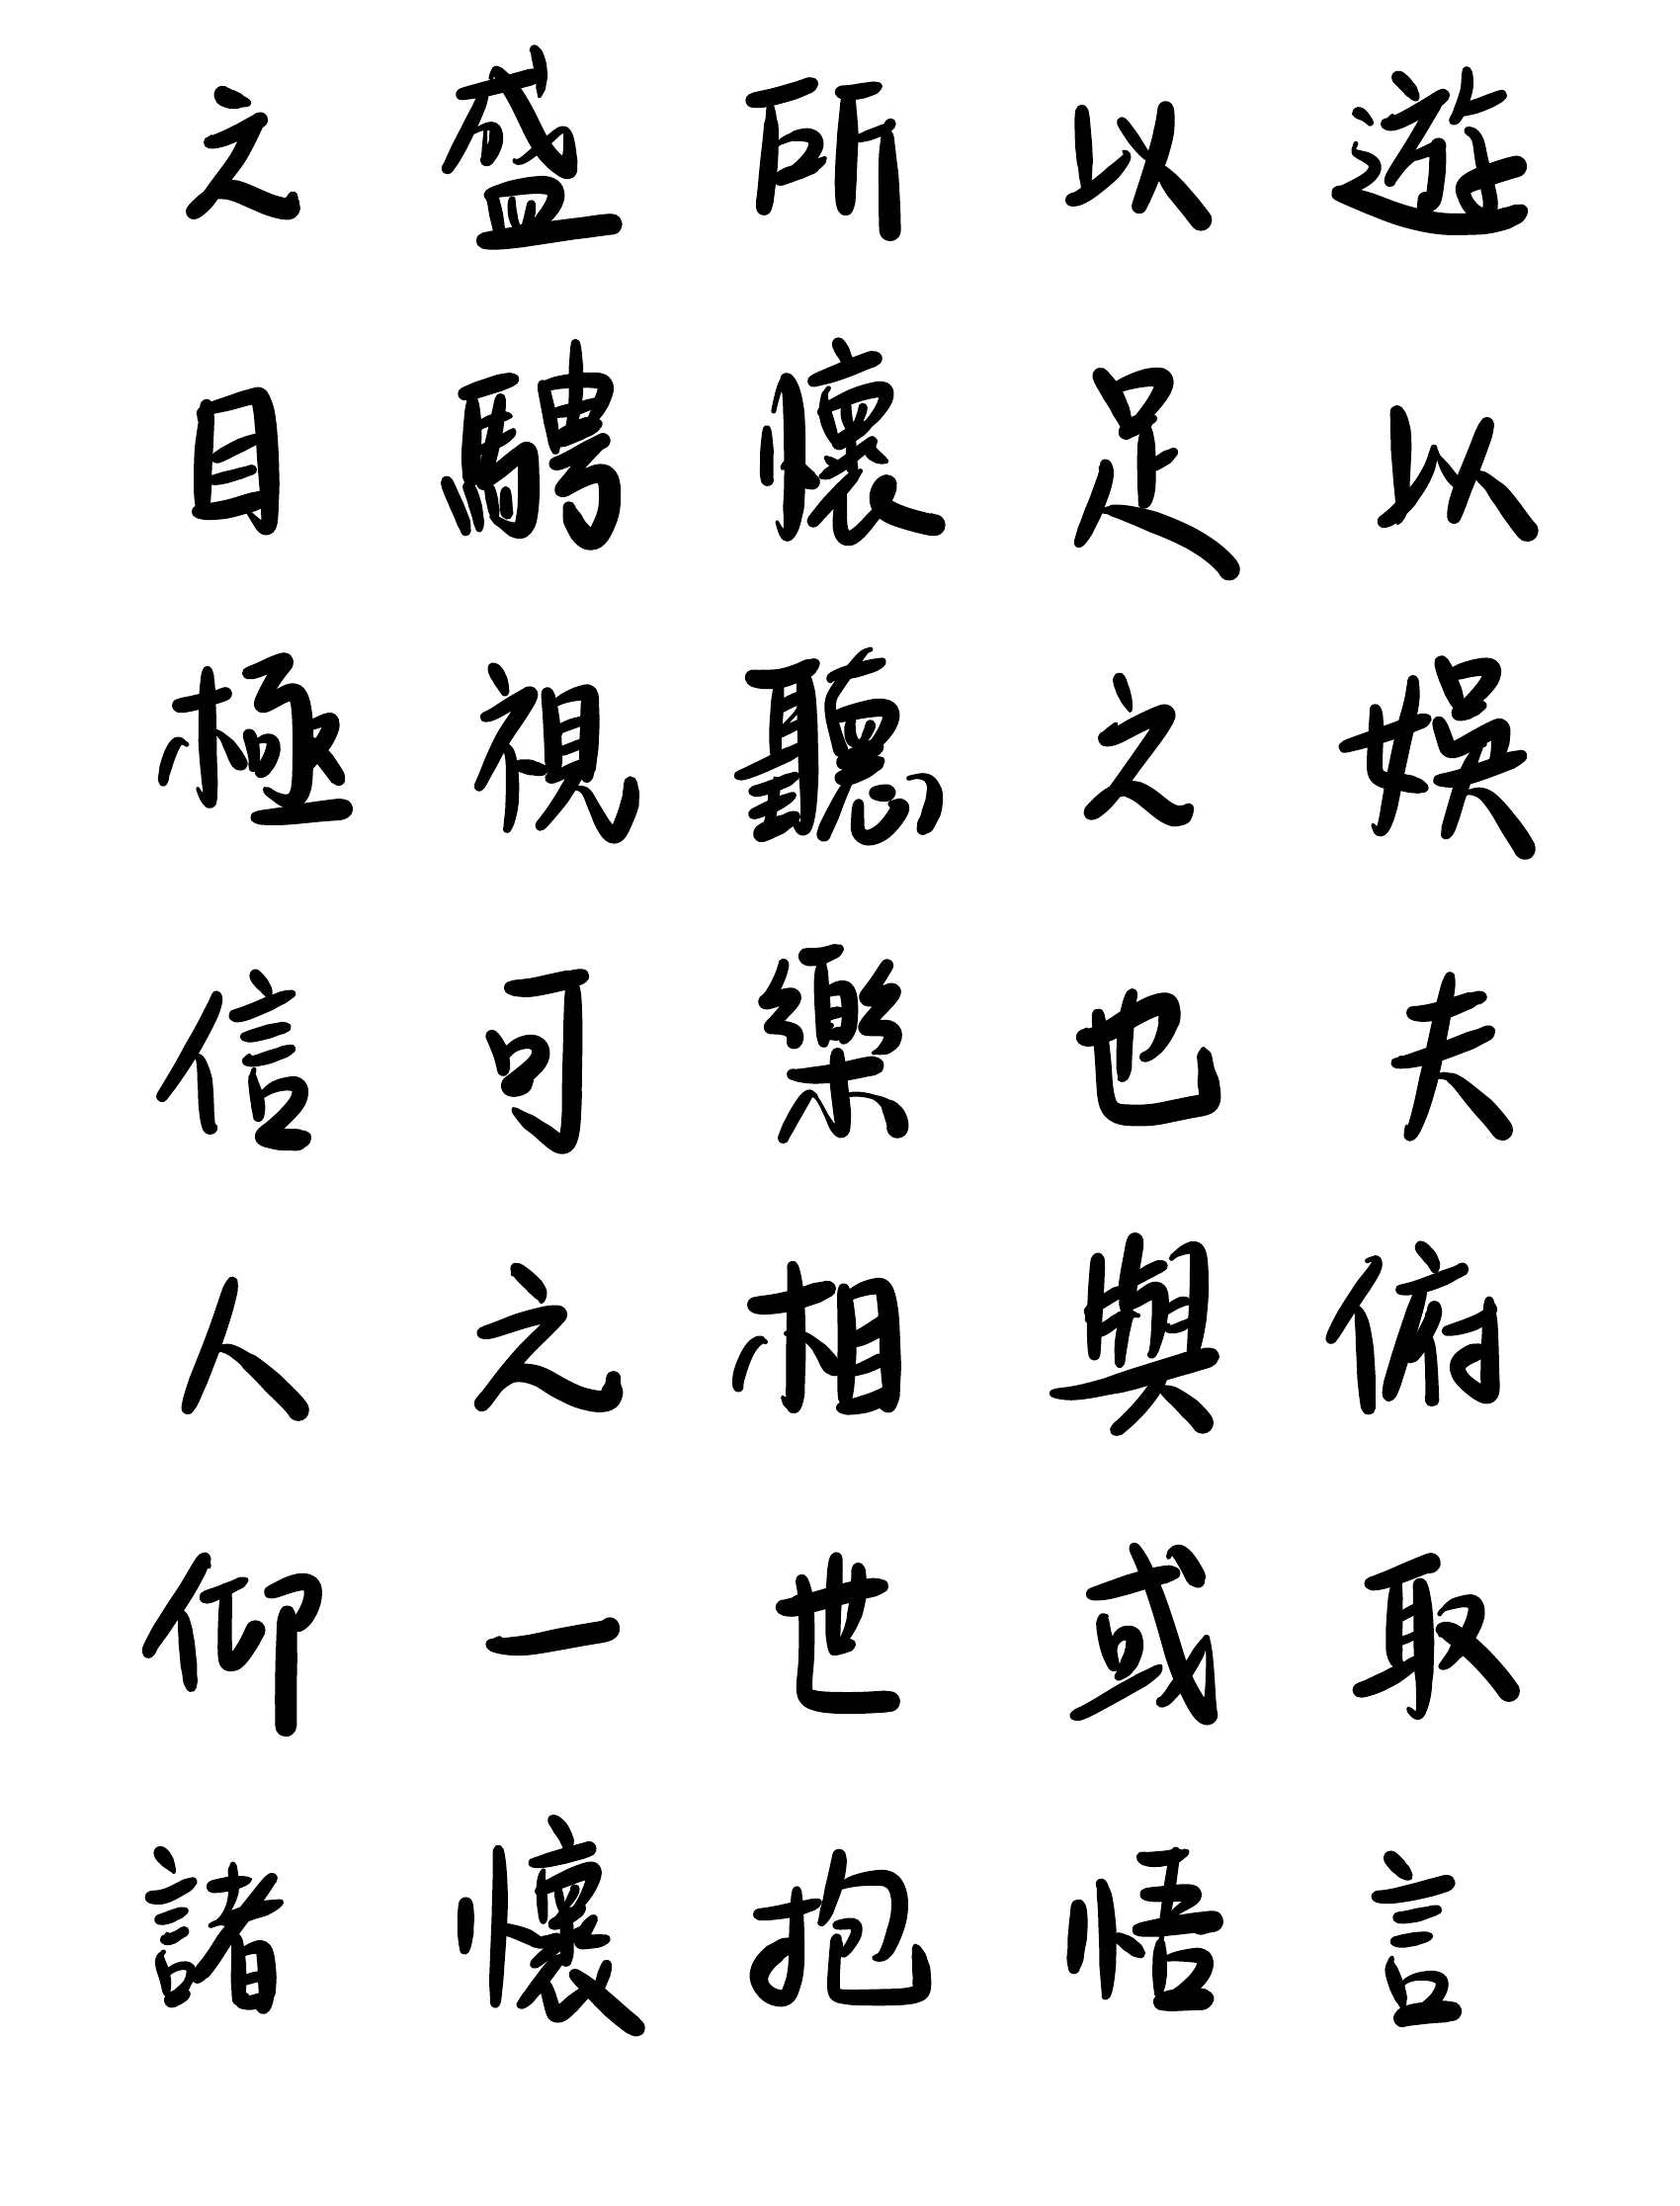 之盛所以遊
目騁懷足以
極視聽之娛
信可樂也夫
人之相與俯
仰一世或取
諸懷抱悟言